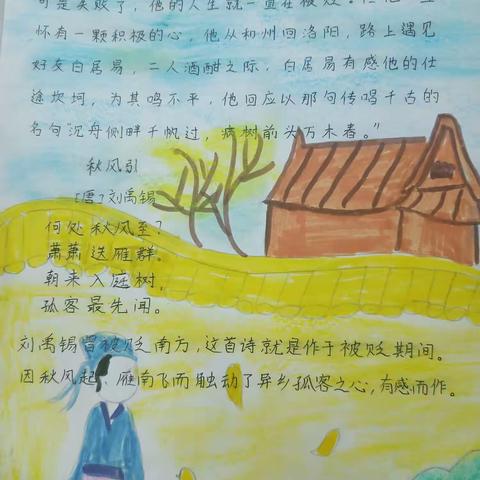 可是失败了，他的人生就一直在被贬。
怀有一颗积极的心，他从和州回洛阳，路上遇见
好友白居易，二人酒酣之际，白居易有感他的仕
途坎坷，为其鸣不平，他回应以那句传唱千古的
名句"沉舟侧畔千帆过，病树前头万木春。"
秋风引
[唐]刘禹锡
何处秋风至？
萧萧送雁群。
朝来入庭树，
孤客最先闻。
刘禹锡曾被贬南方，这首诗就是作于被贬期间。
因秋风起、雁南飞而触动了异乡孤客之心，有感而作。